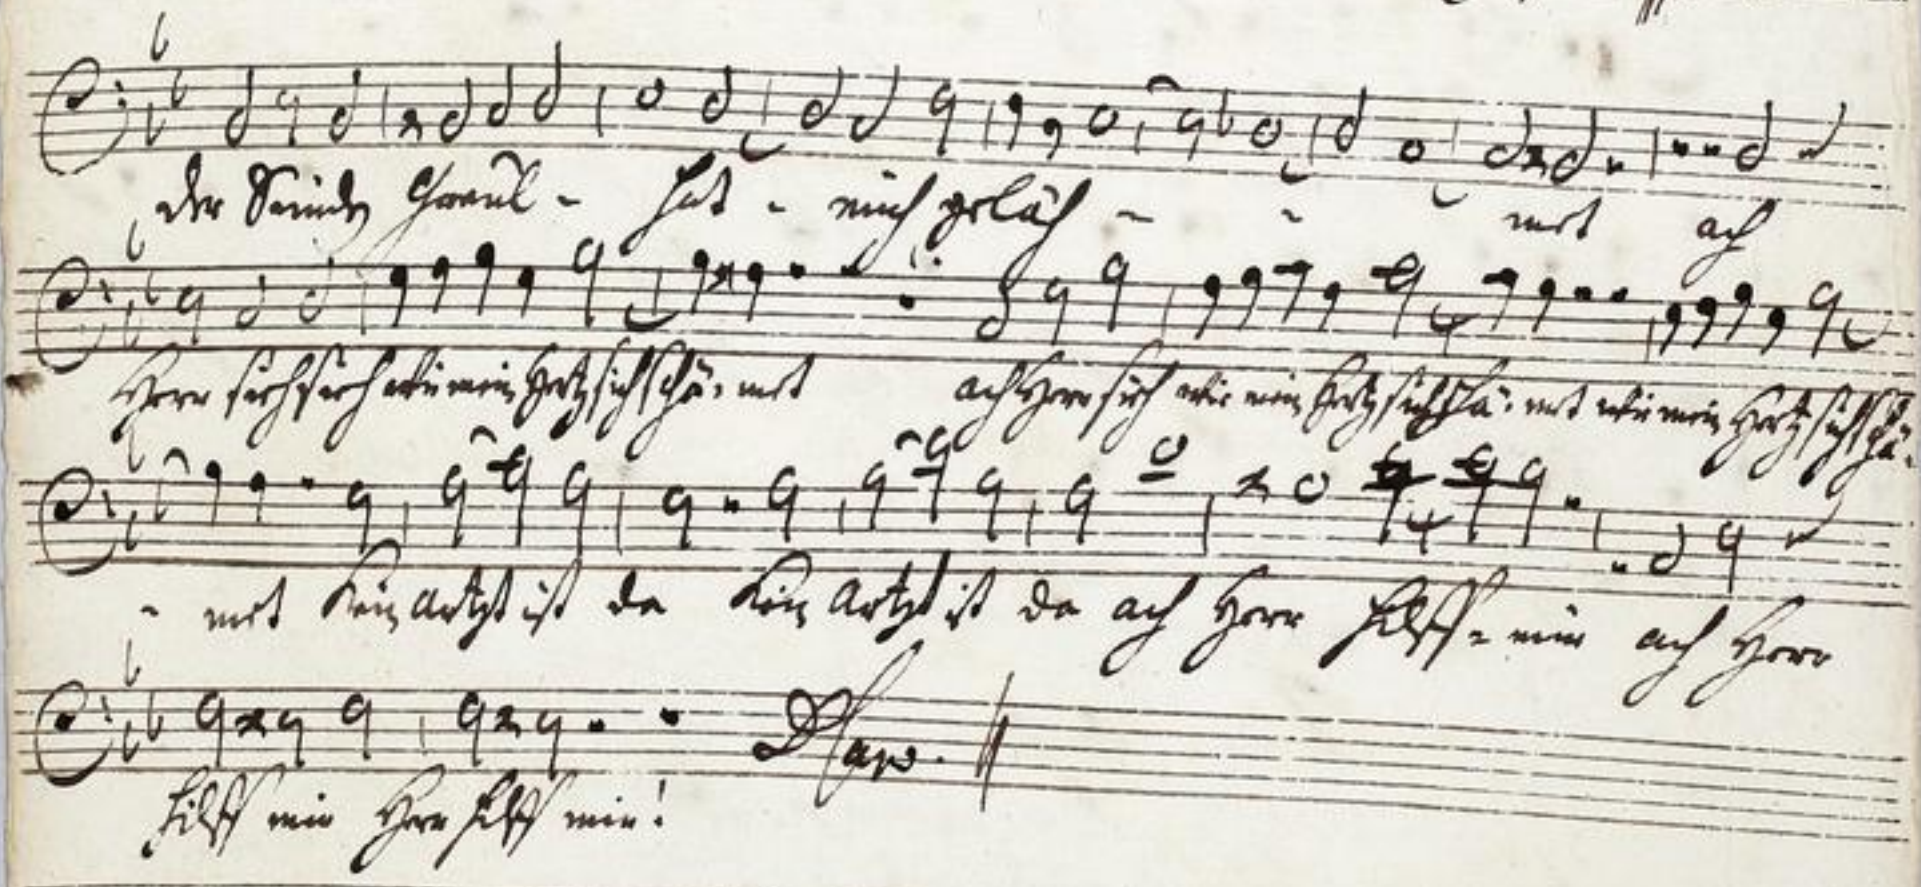 der Sünden Greul - hat - mich geläh - - met ach
Herr sieh sieh wie mein Hertz sich schä- met ach Herr sieh wie mein Hertz sich schä- met wie mein Hertz sich schä-
- met Kein Artzt ist da Kein Artzt ist da ach Herr hilff - mir ach Herr
hilff mir Herr hilff mir! D Capo.